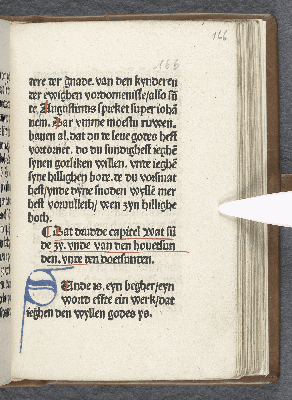 166
166
tere ter gnade. van den kynderen
der ewighen vordomenisse/also sū
te Augustinus spreket super iohā
nem. Dar vmme moestu ruwen.
hauen al. dat du te leue godes hest
vortornet. do du sundighest ieghē
synen gotliken wyllen. vnde ieghē
syne hillighen bode. te du vorsmat
hest/vnde dyne snoden wylle mer
hest voruullet/ wen zyn hillighe
both.
¶ Dat drudde capitel wat sū
de zy. vnde van den houetsun
den. vnde ten doetsunden.
SUnde is. eyn begher/eyn
word efte ein werk/dat
ieghen den wyllen godes ys.